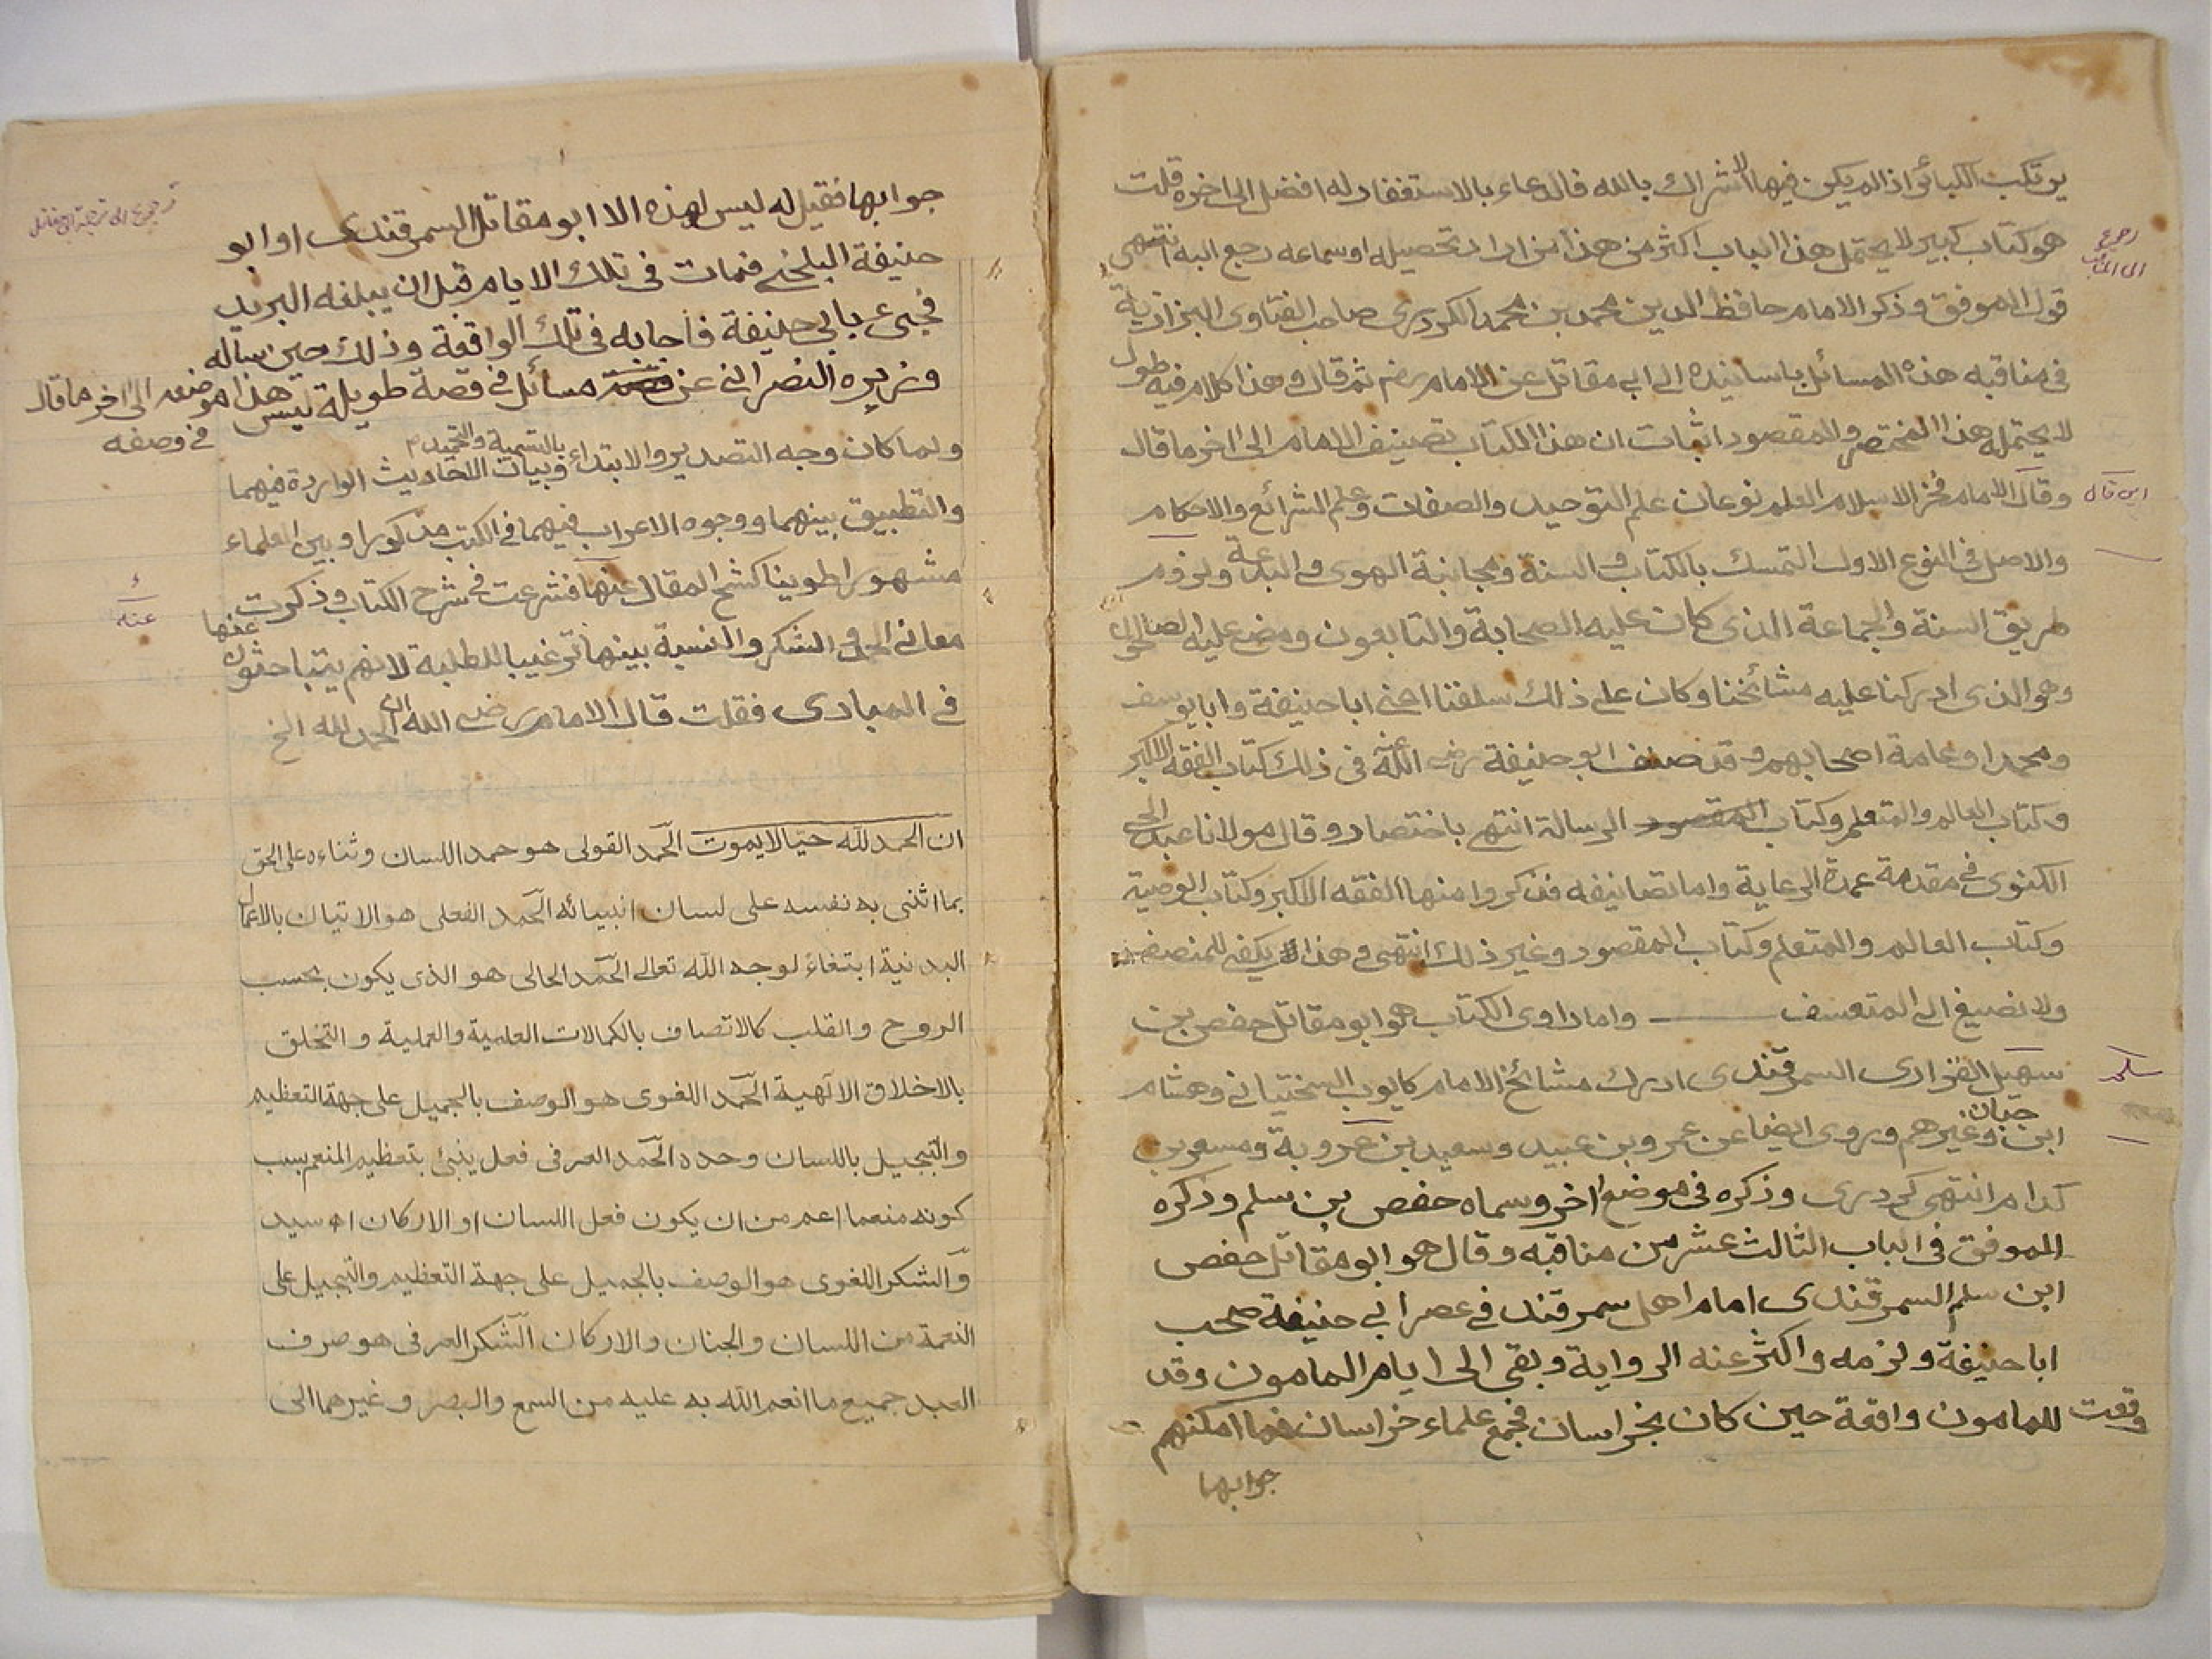 يرتكب الكبائر اذا لم يكن فيها الاشراك بالله فالدعاء بالاستغفار له افضل الى اخره قلت
هو كتاب كبير لا يحتمل هذا الباب اكثر من هذا من اراد تحصيله او سماعه رجع اليه انتهى
رجع
قول الموفق وذكر الامام حافظ الدين محمد بن محمد الكردرى صاحب الفتاوى البزازية
فى مناقبه هذه المسائل باسانيده الى ابى مقاتل عن الامام رضم ثم قال وهذا كلام فيه طول
لا يحتمله هذا المختصر والمقصود اثبات ان هذا الكتاب تصنيف الامام الى اخر ما قال
وقال الامام فخر الاسلام العلم نوعان علم التوحيد والصفات وعلم الشرائع والاحكام
والاصل فى النوع الاول التمسك بالكتاب والسنة ومجانبة الهوى والبدعة ولزوم
طريق السنة والجماعة الذى كان عليه الصحابة والتابعون ومضى عليه الصالحون
وهو الذى ادركنا عليه مشائخنا وكان على ذلك سلفنا اعنى ابا حنيفة وابا يوسف
ومحمدا وعامة اصحابهم وقد صنف ابو حنيفة رضى الله عنه فى ذلك كتاب الفقه الاكبر
وكتاب العالم والمتعلم وكتاب المقصود الرسالة انتهى باختصار وقال مولانا عبد الحى
الكنوى فى مقدمة عمدة الرعاية واما تصانيفه فذكروا منها الفقه الاكبر وكتاب الوصية
وكتاب العالم والمتعلم وكتاب المقصود وغير ذلك انتهى وهذا يكفى للمنصف
ولا نصيغ الى المتعسف ـــــ واما راوى الكتاب هو ابو مقاتل حفص بن
سهيل الفزارى السمرقندى ادرك مشائخ الامام كايوب السختيانى وهشام
سلم
ابن حبان وغيرهم وروى ايضا عن عمرو بن عبيد وسعيد بن عروبة ومسعر بن
كدام انتهى كردرى وذكره فى موضع اخر وسماه حفص بن سلم وذكره
الموفق فى الباب الثالث عشر من مناقبه وقال هو ابو مقاتل حفص
ابن سلم السمرقندى امام اهل سمرقند فى عصر ابى حنيفة صحب
ابا حنيفة ولزمه واكثر عنه الرواية وبقى الى ايام المامون وقد
وقعت للمامون واقعة حين كان بخراسان فجمع علماء خراسان فما امكنهم
جوابها
جوابها فقيل له ليس لهذه الا ابو مقاتل السمرقندى او ابو
حنيفة البلخى فمات فى تلك الايام قبل ان يبلغه البريد
فجىء بابى حنيفة فاجابه فى تلك الواقعة وذلك حين ساله
وزيره النصرانى عن مسائل فى قصة طويلة ليس هذا موضعه الى اخر ما قال
فى وصفه
ولما كان وجه التصدير والابتداء بالتسمية والتحميد وبيان الاحاديث الواردة فيهما
والتطبيق بينهما ووجوه الاعراب فيهما فى الكتب مذكورا وبين العلماء
مشهورا طوينا كشح المقال عنها فشرعت فى شرح الكتاب وذكرت
عنه
معانى الحمد والشكر والنسبة بينهما ترغيبا للطلبة لانهم يتباحثون عنها
فى المبادى فقلت قال الامام رضى الله ان الحمد لله الخ
ان الحمد لله حيّا لا يموت الحمد القولى هو حمد اللسان وثناءه على الحق
بما اثنى به نفسه على لسان انبيائه الحمد الفعلى هو الاتيان بالاعمال
البدنية ابتغاء لوجه الله تعالى الحمد الحالى هو الذى يكون بحسب
الروح والقلب كالاتصاف بالكمالات العلمية والعملية والتخلق
بالاخلاق الالهية الحمد اللغوى هو الوصف بالجميل على جهة التعظيم
والتبجيل باللسان وحده الحمد العرفى فعل ينبئ بتعظيم المنعم بسبب
كونه منعما اعم من ان يكون فعل اللسان او الاركان اه سيد
والشكر اللغوى هو الوصف بالجميل على جهة التعظيم والتبجيل على
النعمة من اللسان والجنان والاركان الشكر العرفى هو صرف
العبد جميع ما انعم الله به عليه من السمع والبصر وغيرهما الى